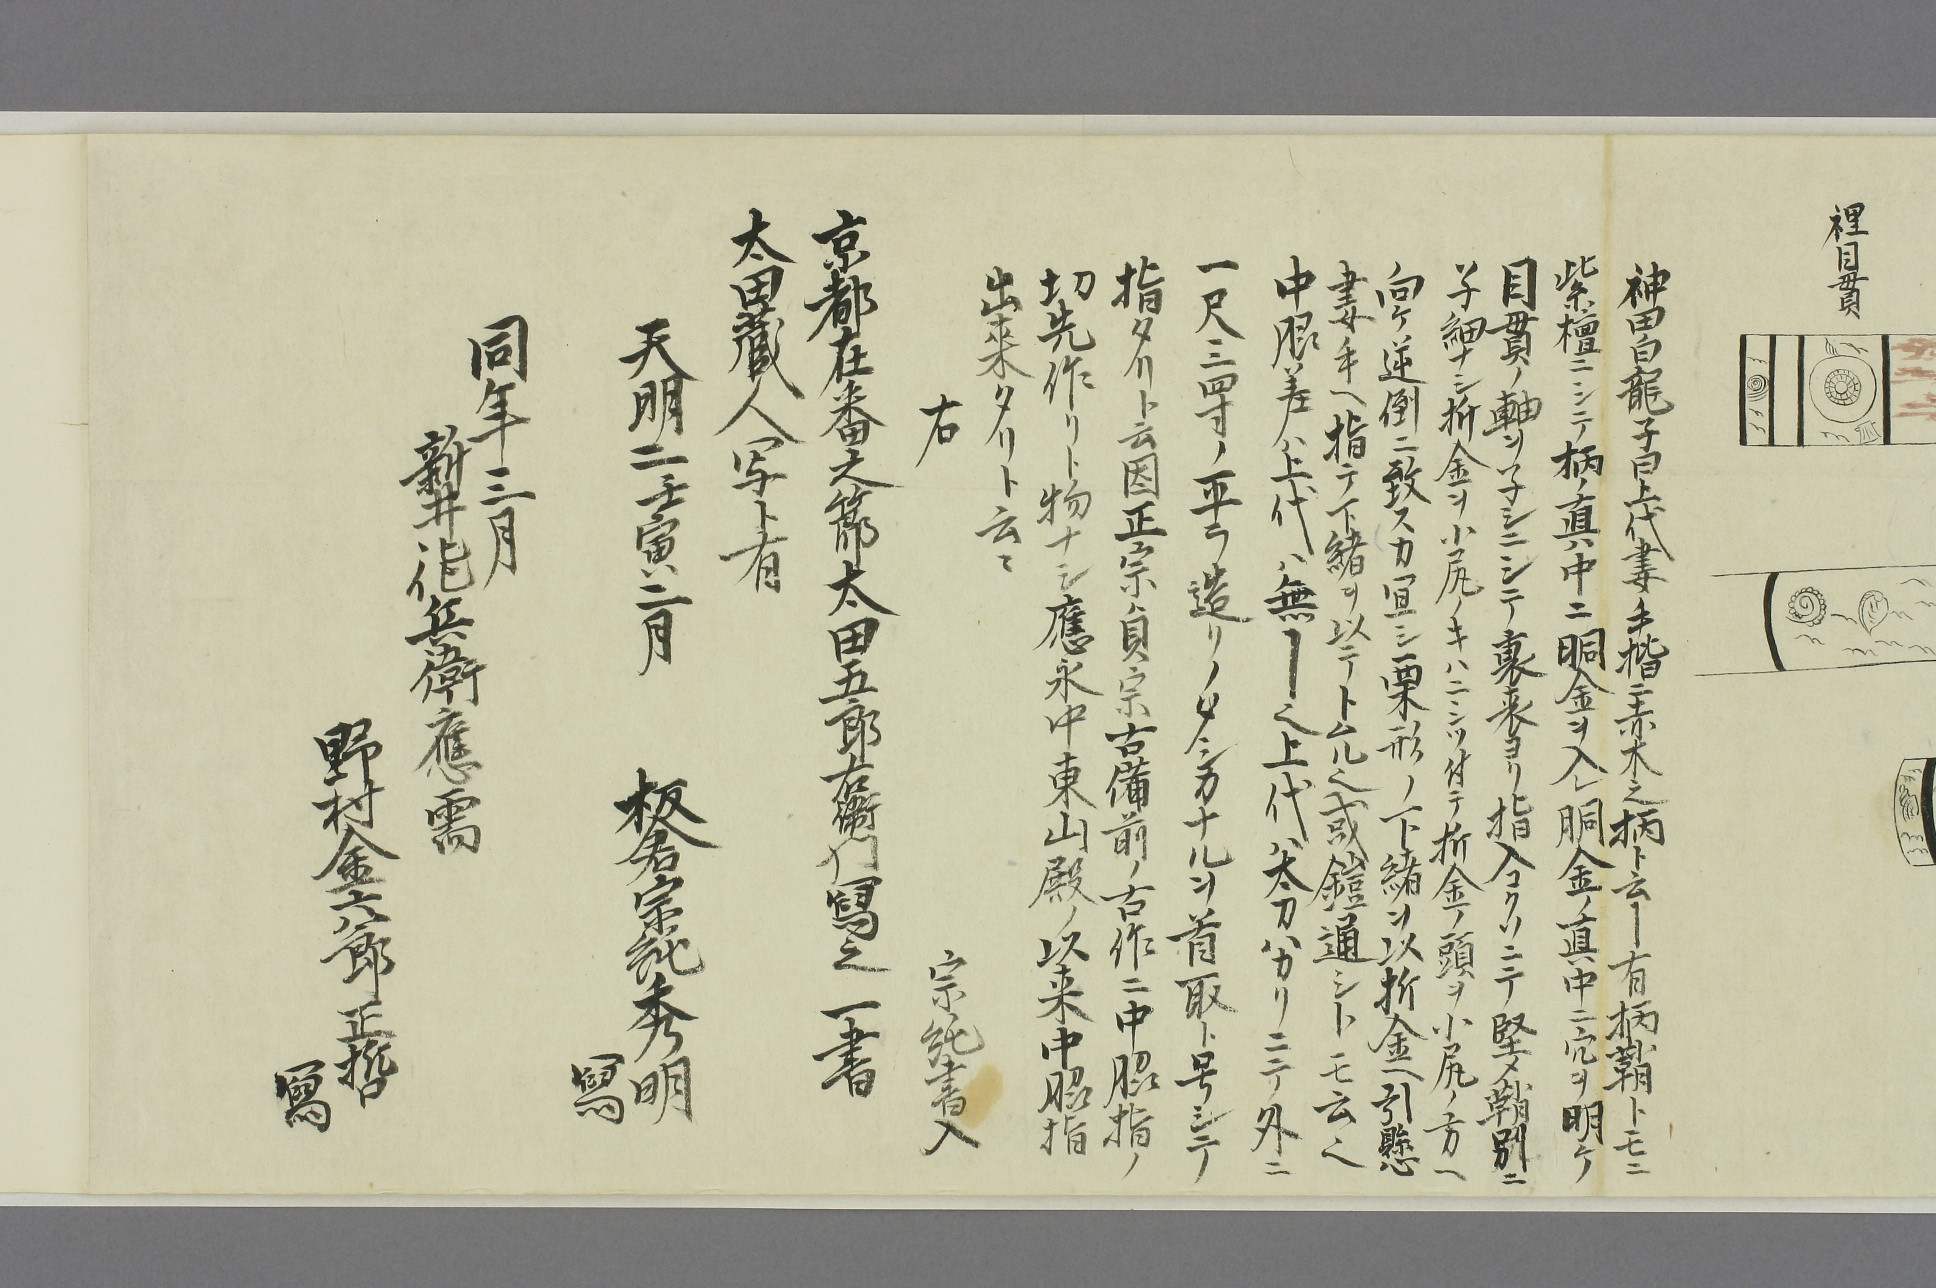 裡目貫
神田白龍子曰上代妻手指ニ赤木之柄ト云ヿ有柄鞘トモニ
紫檀ニシテ柄ノ真中ニ胴金ヲ入レ胴金ノ真中ニ穴ヲ明ケ
目貫ノ軸ヲ子シニシテ裏表ヨリ指入コクソニテ堅メ鞘別ニ
子細ナシ折金ヲ小尻ノキハニ二ツ付テ折金ノ頭ヲ小尻ノ方ヘ
向ケ逆倒ニ致スカ宜シ栗形ノ下緒ヲ以折金ヘ引懸
妻手ヘ指テ下緒ヲ以テトムル也或鎧通シトモ云也
中脇差ハ上代ハ無ヿ也上代ハ太刀ハカリニテ外ニ
一尺三四寸ノ平ラ造リノ タシカナルヲ首取ト号シテ
指タリト云因正宗貞宗古備前ノ古作ニ中脇指ノ
切先作リト物ナシ應永中東山殿ノ以来中脇指
出来タリト云々
右
宗純書入
京都在番之節太田五郎右衛門寫之一書
太田蔵人写ト有
天明二壬寅二月
板倉宗純秀明
寫
同年三月
新井作兵衛應需
野村金六郎正哲
寫